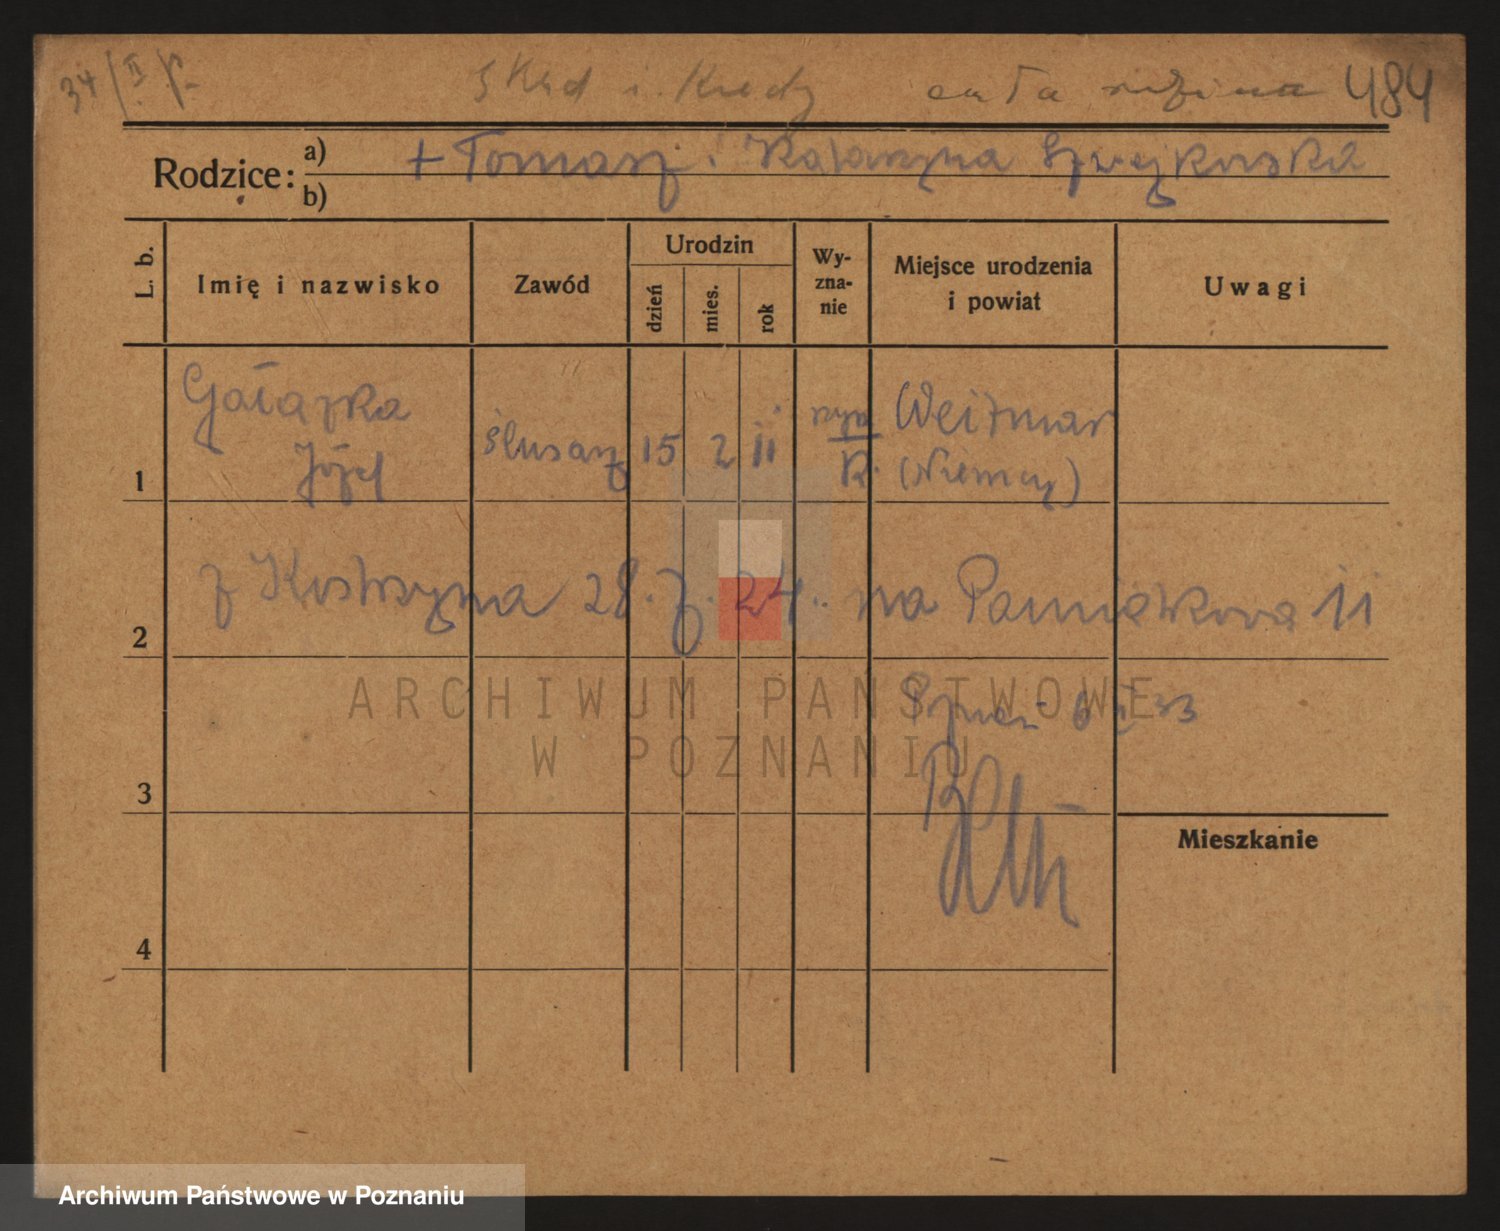 34/II
cała 484
Rodzice: a) + Tomasz i Katarzyna Szwejkowska
b)
L. b.
Imię i nazwisko
Zawód
Urodzin
dzień
mies.
rok
Wy-
zna-
nie
Miejsce urodzenia
i powiat
Uwagi
1
Gałązka
Józef
ślusarz 15 2 11
rzym
k.
Weitmar
(Niemcy)
2
z Kostrzyna 28. 7. 24. na Pamiątkowa 11
6 33
3
Mieszkanie
4
ARCHIWUM PAŃSTWOWE
W POZNANIU
Archiwum Państwowe w Poznaniu